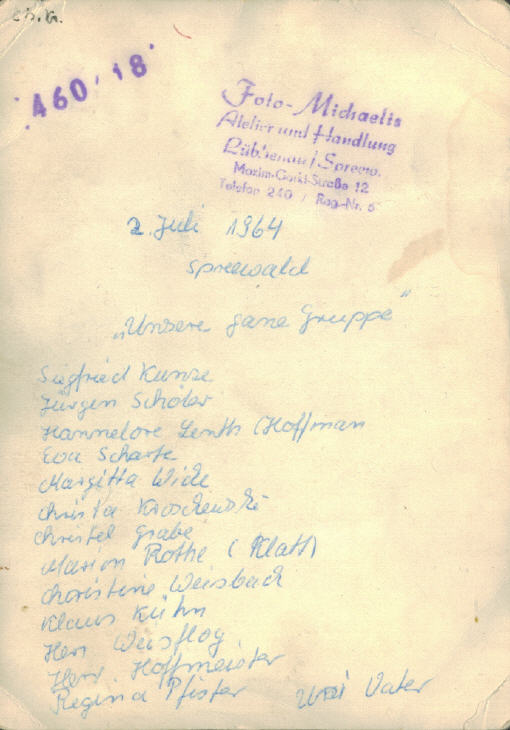 Ch. G.
460/18
Foto-Michaelis
Atelier und Handlung
Lübbenau/Spreew.
Maxim-Gorki-Straße 12
Telefon 240 / Reg-Nr. 5
2. Juli 1964
Spreewald
„Unsere ganze Gruppe"
Siegfried Kunze
Jürgen Schöler
Hannelore Lenth (Hoffman
Eva Scharfe
Margitta Wicke
Christa
Christel Grabe
Marion Rothe (Klatt)
Christine Weisbach
Klaus Kühn
Herr Weisflog
Herr Hoffmeister
Regina Pfister Vater